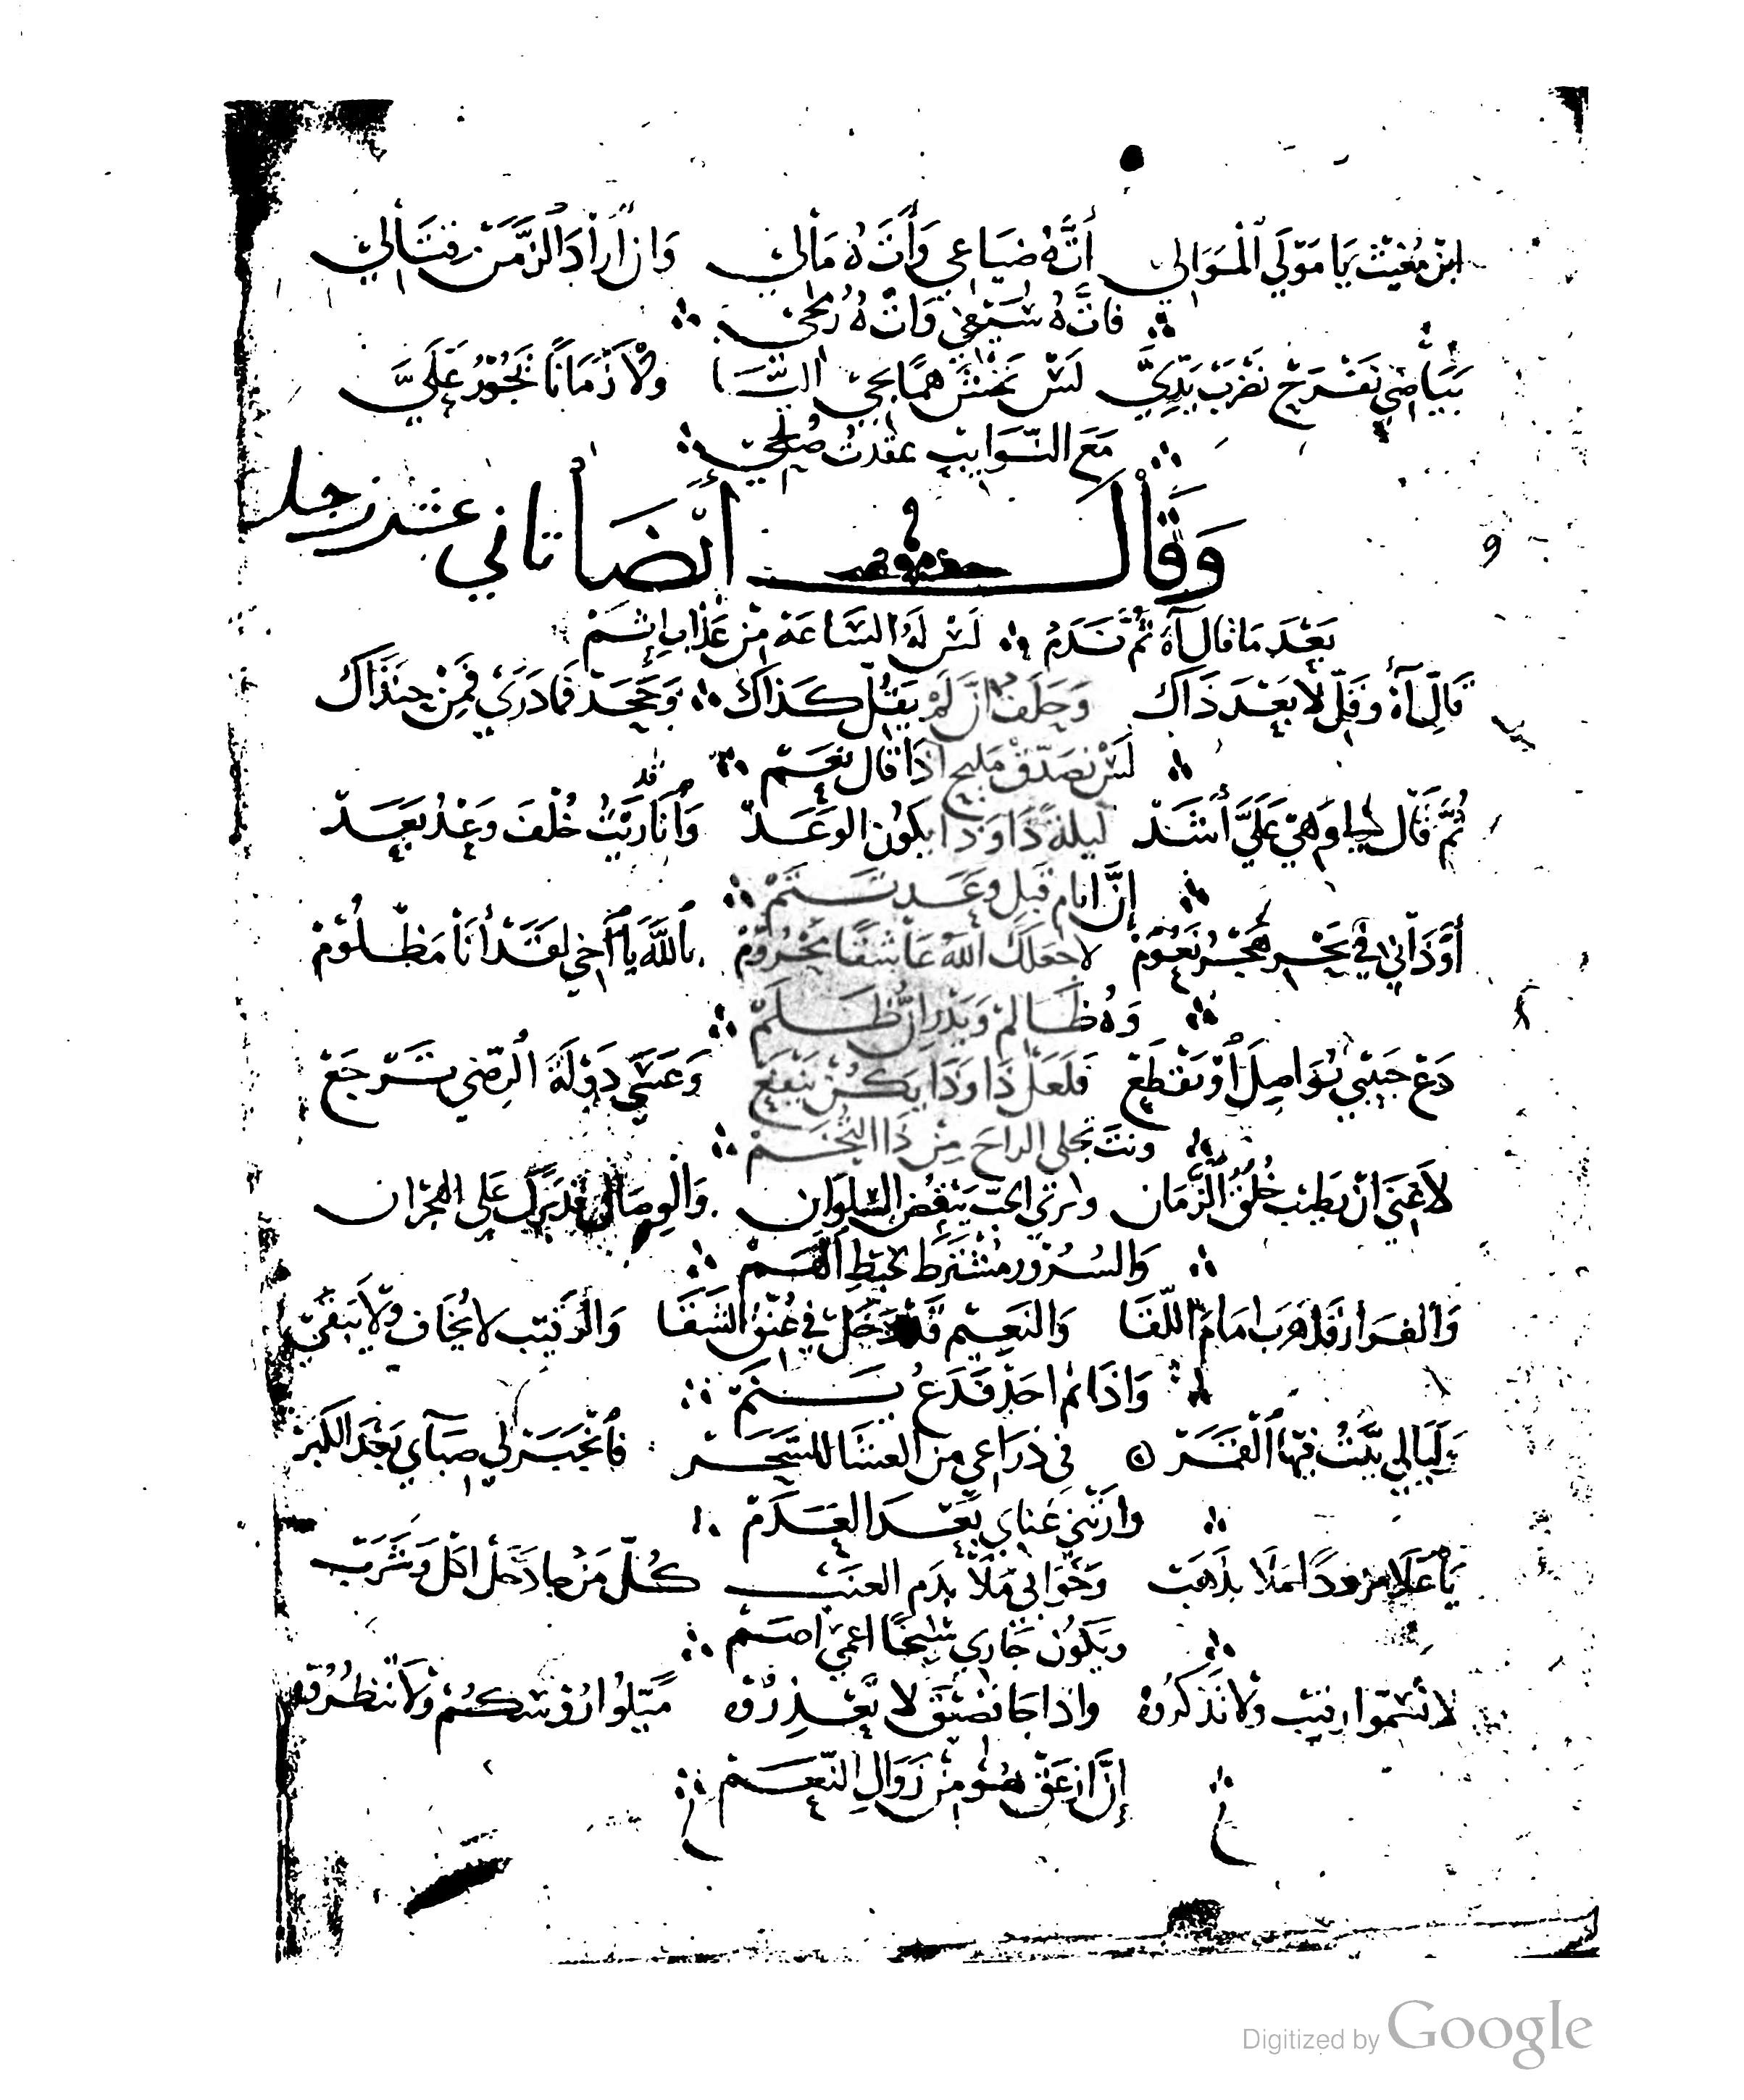 ابن مُغيث يَا مَوْلَي اَلْمَوَالي أنَّهُ ضيَاعِي وَأنَّهُ مَالي وَان أرادَ الزَّمَن قتَالي
فانَّهُ سَيْفي وَانَّهُ رُمحي
بَيَاضِي نَفْرَحْ نَضْرَبْ بيَدِيَّ لَسْ نَخْشَ همًا يجي الَيَّ وَلا زَمَانًا يَجُوْرُ عَلَيَّ
مَعَ النَّوَايِبِ عقدتُ صُلحي
وَقَالَ أيْضًا ثاني عشر زجل
بَعْدَ مَا قال آهْ ثُمَّ نَدَمْ لَسْ لهُ السَّاعَة مِنْ عَذابِ اثمْ
قَالِّ آهْ وقَلِّ لا بَعْدَ ذَاك وَحَلَف انَّ لَمْ يَقُلْ كَذَاك وَجَحَدْ فمَا دَرَي فَمِنْ حِنذَاك
لَسْ نصَدّقْ مَليح اذَا قال نَعَمْ
ثُمَّ قَال لي وَهي عَلَيَّ أشَدْ ليلة ذَا وَذَا يكون الوعَدْ وَأنَا قد رَيْتُ خُلفَ وَعْدُ بَعَدْ
إنَّ ايام قَبل وعَد ستتم
أوْ ذَاني في يحْر هَجْرُ نَعُوْمْ لا جعَلك اللهْ عَاشقًا مَحْرُوْمْ باللَّهَ يَا أَخي لقَدْ أنَا مَظْلُوْمْ
وَهُ ظَالمْ وَيَدْرِ انُّ ظَلَمْ
دَعْ حَبيْبي يُوَاصِلَ أوْ يَقْطَعْ فَلَعَلْ ذَا وَذَا يكُنْ يَنْفَعْ وَعَسَي دَوْلَةَ الرِضي تَرْجَعْ
ونتَ تجلي الراحَ مِنْ ذَا التُّخَمْ
لا غِنَي انْ يَطيبْ خُلقَ الزَّمَان وترَي الحبّ يَنقُض السُّلوَان وَالوِصَال قد بَرَك علَى الهجْرَان
وَالسُرُوْر مُشْتَرَط بحَيْطِ الْهَمْ
وَالفرَار قَدْ هَرَب امَامَ اللّقَا وَالنعِيْم قَدْ دَخَلْ في عُنْقُ الشقَا وَالرقيْب لا يُخَاف وَلا يُتقَي
وَاذَا لم احَدْ فَدَعُ يَنْتَمْ
وَلَيَالي بتُّ فيْهَا اَلْقَمَرْ في ذرَاعي مِن العشَا للسَّحَرْ فانْجَبَرْ لي صبَاي بَعْدَ الكبَرْ
وارَتْني غنَاي بَعْدَ العَدَمْ
يَا عَلَا مزودًا مَلا بذَهَبْ وَخَوَابي مَلَا بدَم العنَبْ كُلّ مَنْ جا دَخَلْ اكَلْ وَشَرَبْ
وَيَكُوْن جَاري شيْخًا اعمَي اصَمْ
لا تشتمُوا رقيْب وَلا تذْكرُوْهْ واذا جَا تضَيَّقْ لا تَعْذِرُوْه مَيّلوا رُؤسَكُمْ وَلا تنْظرُوْهْ
إنَّ ازعَقْ هُوْ مِنْ زَوَالِ النّعَمْ
Digitized by Google